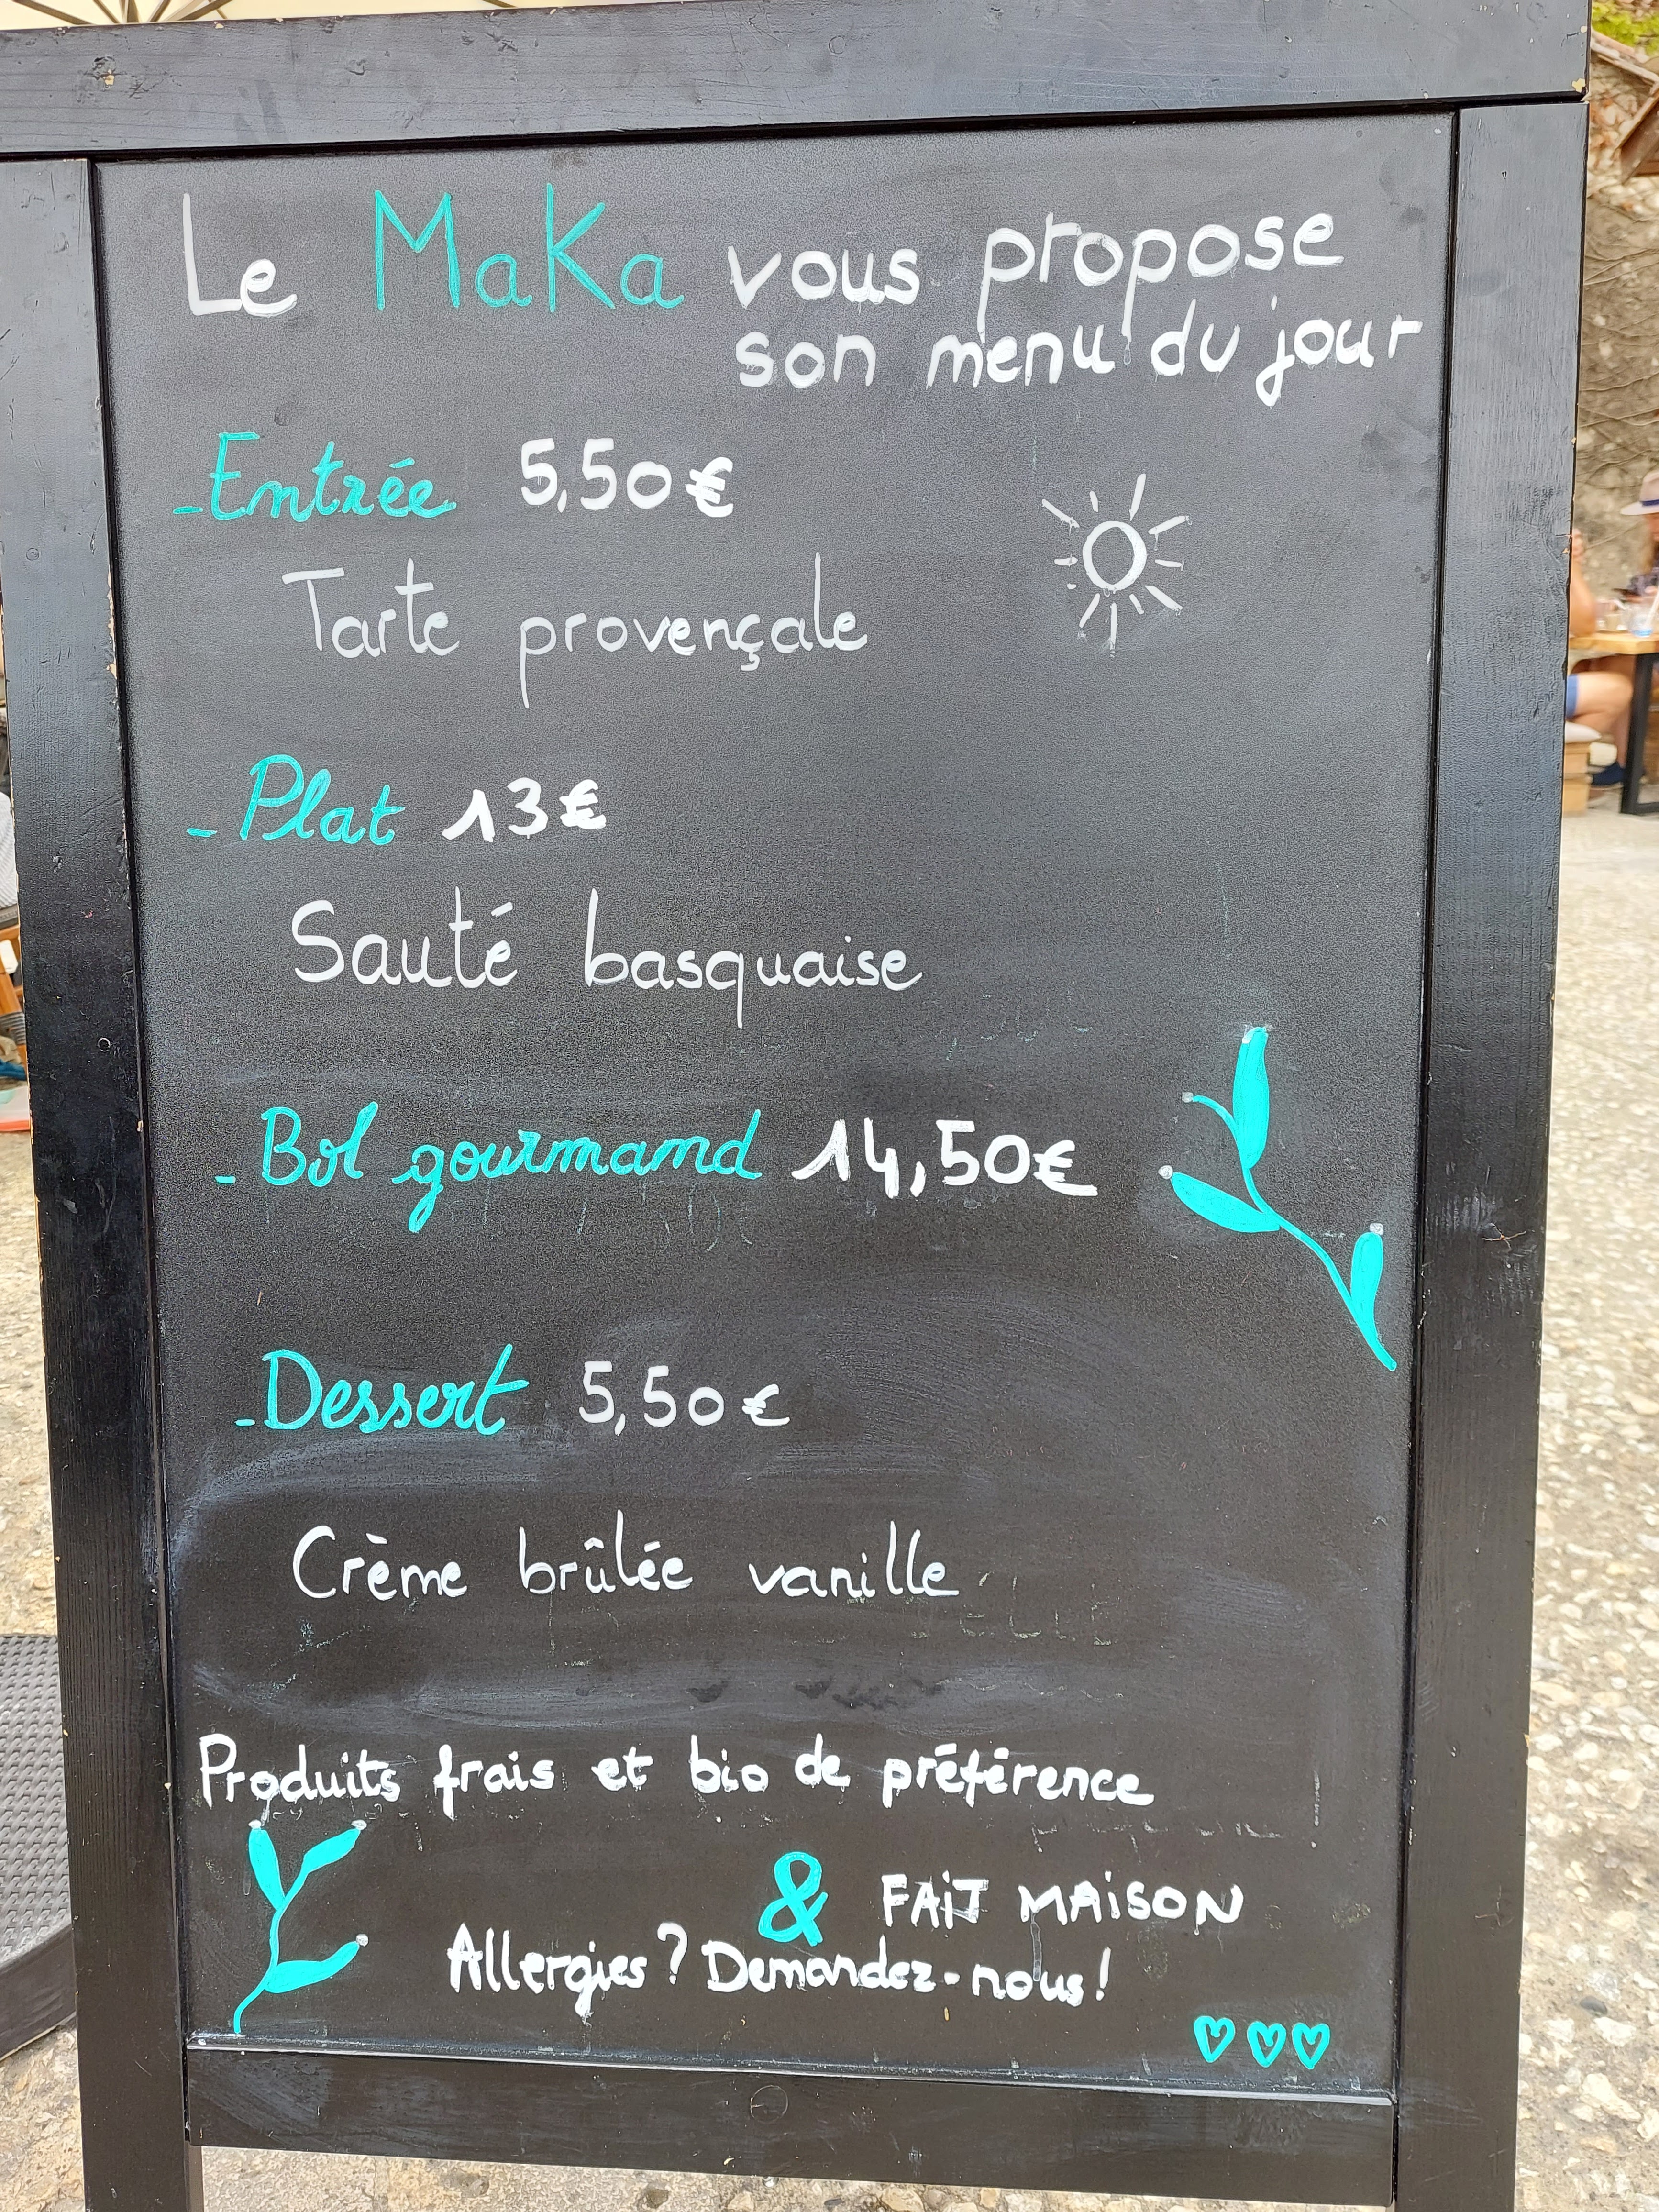 Le MaKa vous propose
son menu du jour
- Entrée 5,50€
Tarte provençale
- Plat 13€
Sauté basquaise
- Bol gourmand 14,50€
- Dessert 5,50€
Crème brûlée vanille
Produits frais et bio de préférence
& FAiT MAiSON
Allergies? Demandez-nous!